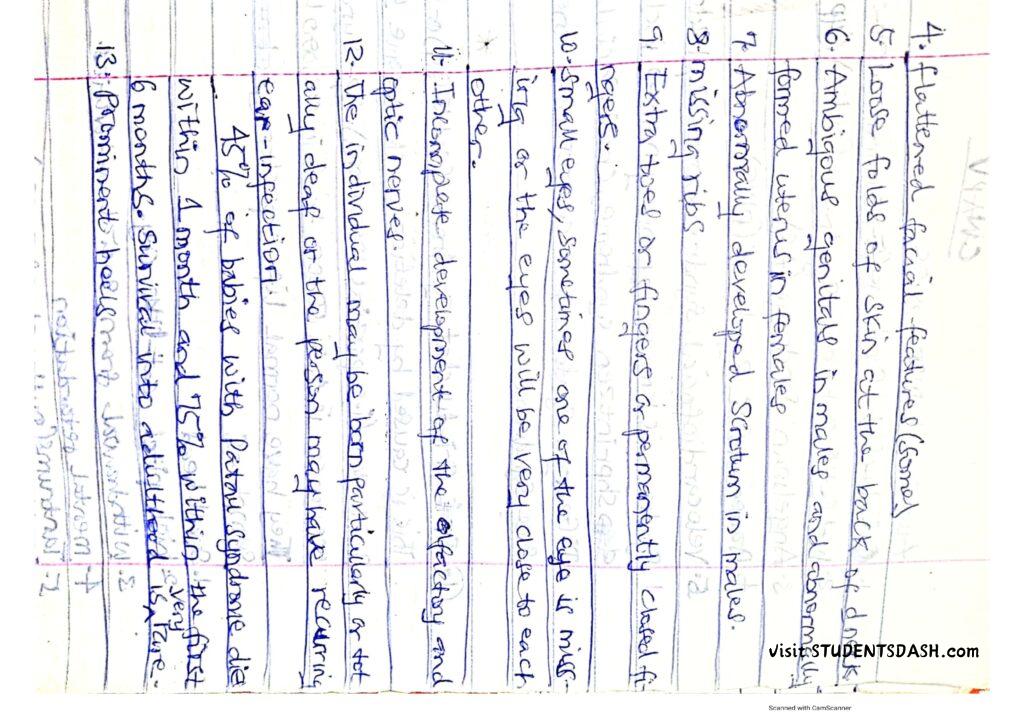 4. flattened facial features (Bones)
5. Loose folds of skin at the back of dneck
6. Ambigous genitals in males and abnormally
formed uterus in females
7. Abnormally developed Scrotum in males.
8. missing ribs
9. Extra toes or fingers or permanently closed fi-
ngers.
10. Small eyes, sometimes one of the eye is miss-
ing or the eyes will be very close to each
other.
11. Incomplete development of the olfactory and
optic nerves.
12. The individual may be born particularly or tot
ally deaf or the person may have recurring
ear-infection.
45% of babies with Patau syndrome die
within 1 month and 75% within the first
6 months. Survival into adulthood is very rare.
13. Prominent heels
visit STUDENTSDASH.com
Scanned with CamScanner